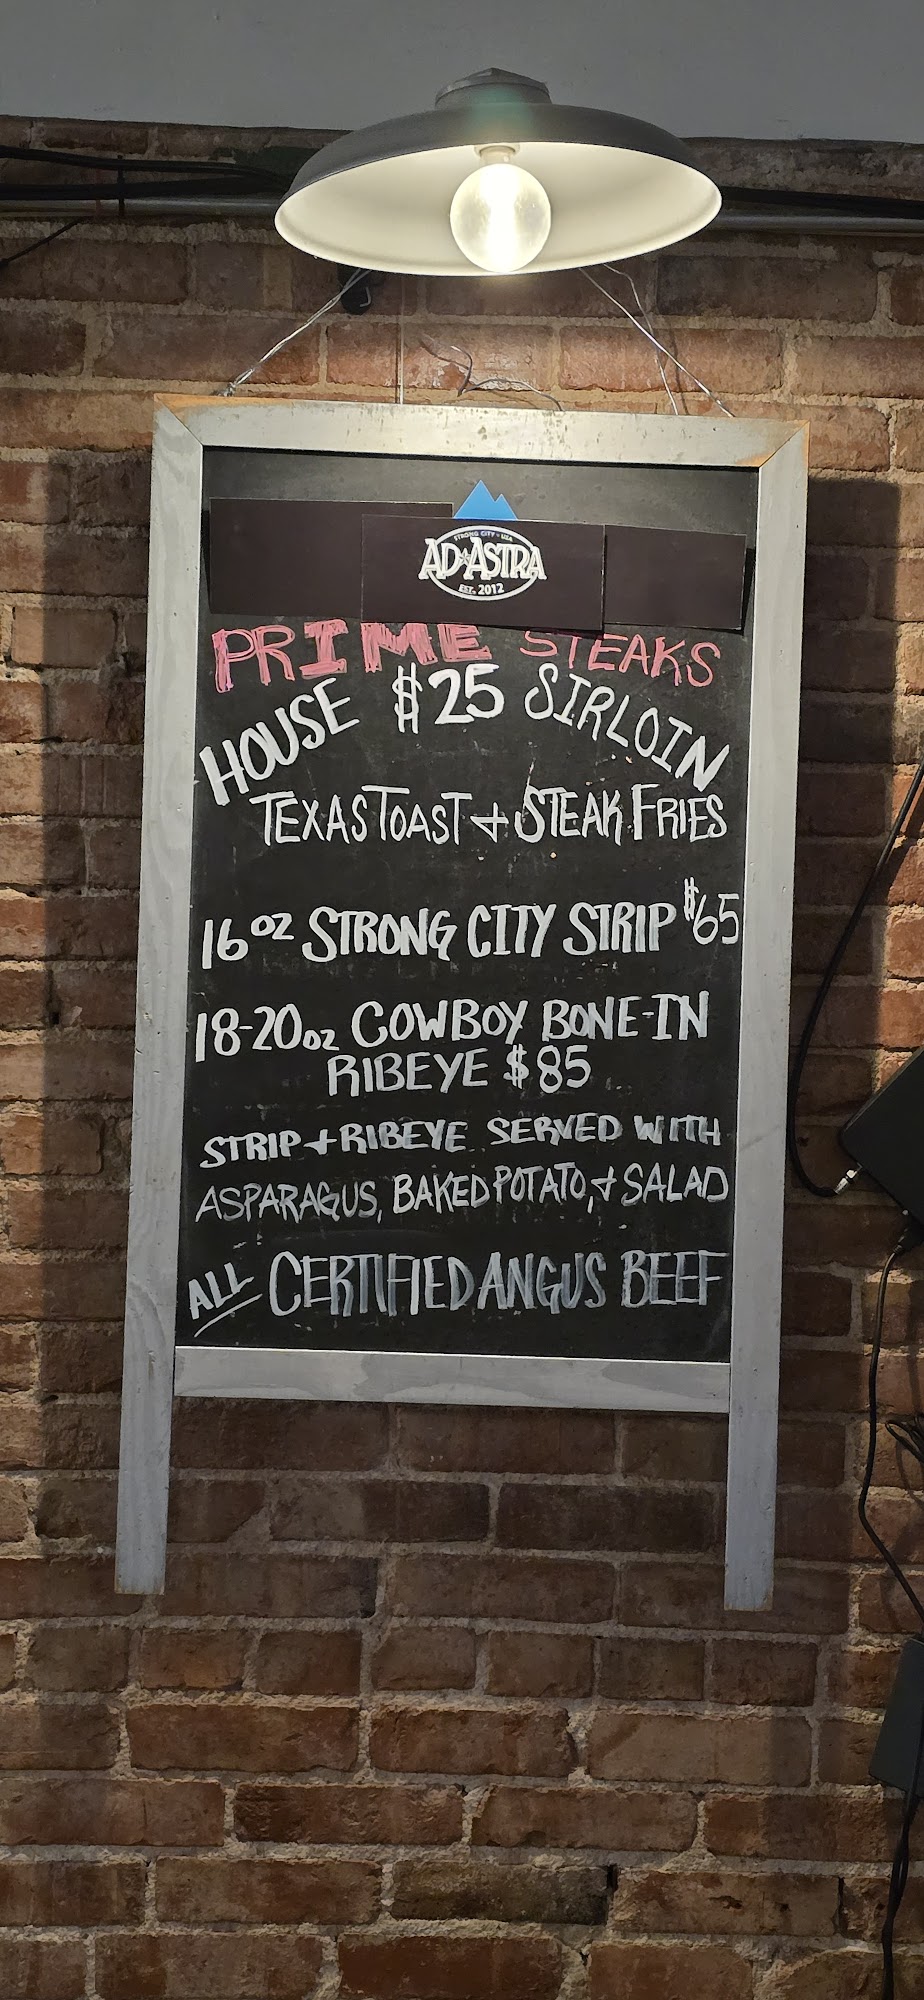 STRONG CITY • USA
AD ASTRA
EST. 2012
PRIME STEAKS
HOUSE $25 SIRLOIN
TEXAS TOAST + STEAK FRIES
16 OZ STRONG CITY STRIP $65
18-20 OZ COWBOY BONE-IN
RIBEYE $85
STRIP + RIBEYE SERVED WITH
ASPARAGUS, BAKED POTATO, + SALAD
ALL CERTIFIED ANGUS BEEF